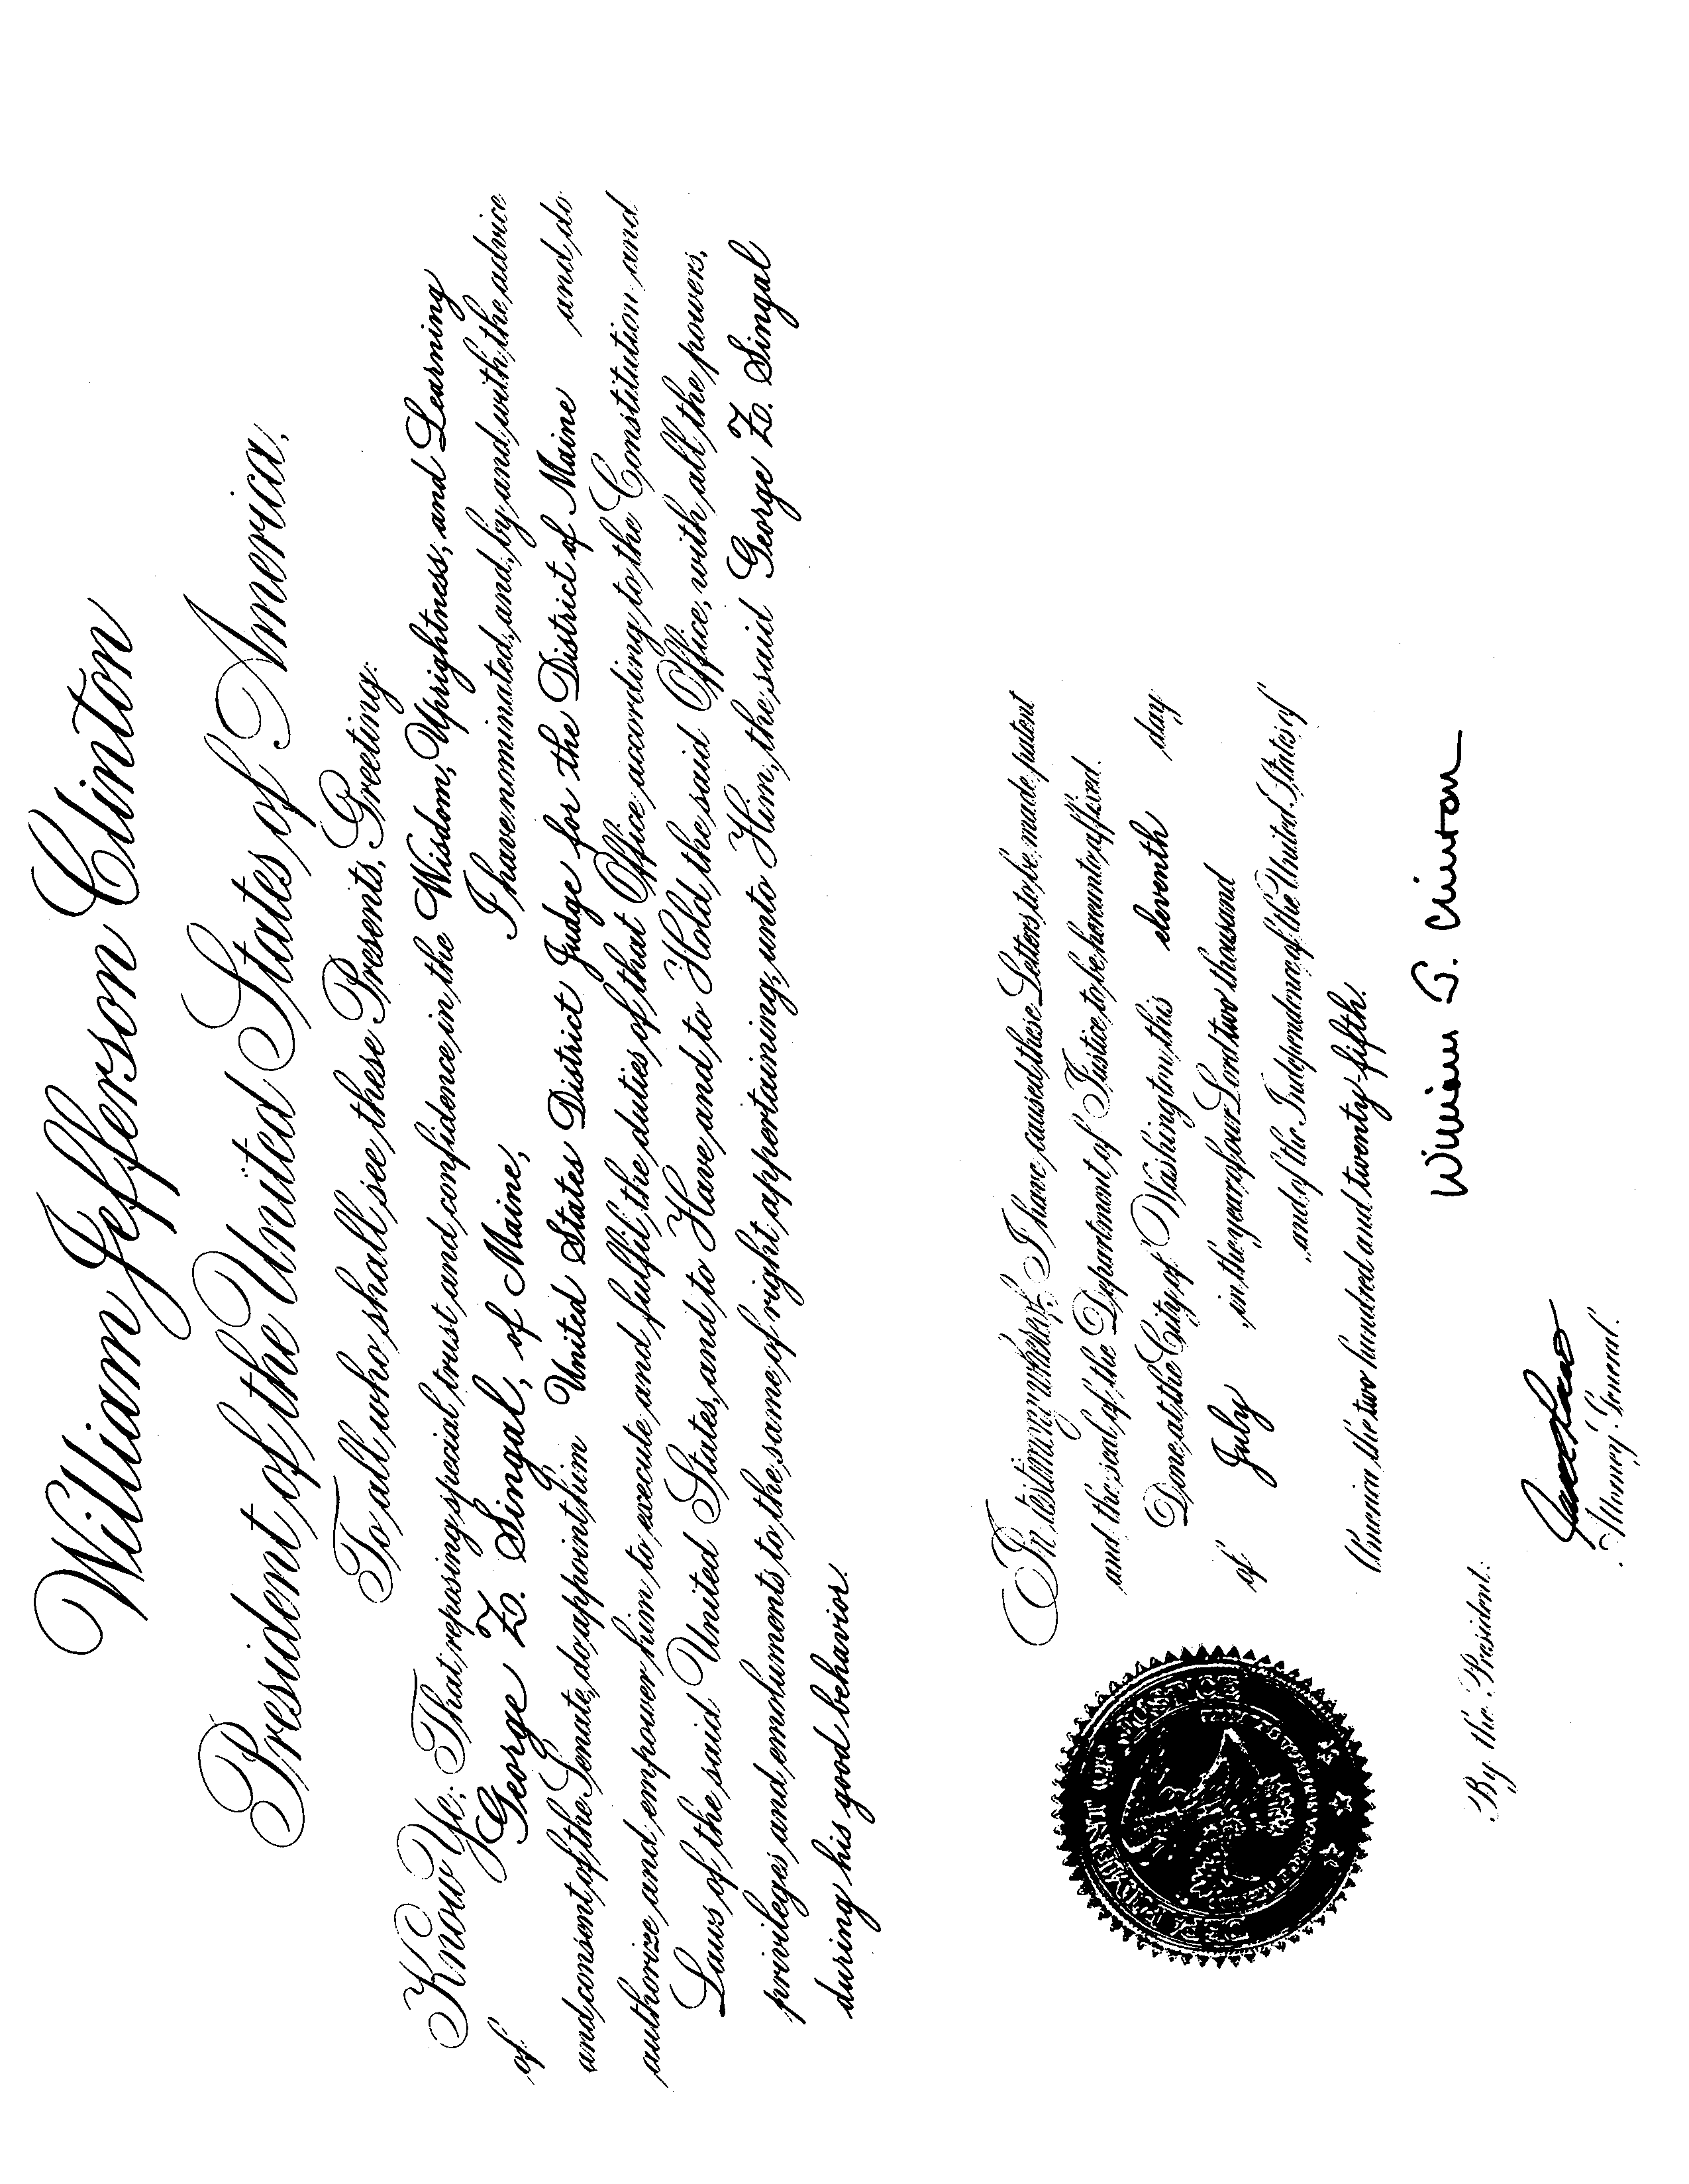 William Jefferson Clinton
President of the United States of America,
To all who shall see these Presents, Greeting:
Know Ye: That reposing special trust and confidence in the Wisdom, Uprightness, and Learning
of George Z. Singal, of Maine, I have nominated, and, by and with the advice
and consent of the Senate, do appoint him United States District Judge for the District of Maine and do
authorize and empower him to execute and fulfil the duties of that Office according to the Constitution and
Laws of the said United States, and to Have and to Hold the said Office, with all the powers,
privileges and emoluments to the same of right appertaining, unto Him, the said George Z. Singal
during his good behavior.
In testimony whereof, I have caused these Letters to be made patent
and the seal of the Department of Justice to be hereunto affixed.
Done at the City of Washington this eleventh day
of July in the year of our Lord two thousand
and of the Independence of the United States of
America the two hundred and twenty-fifth.
DEPARTMENT OF JUSTICE
William J. Clinton
By the President:
Janet Reno
Attorney General.